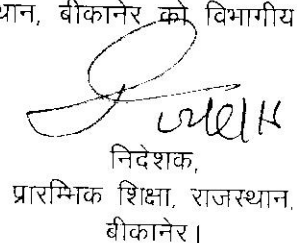 थान, बीकानेर को विभागीय
निदेशक,
प्रारम्भिक शिक्षा, राजस्थान,
बीकानेर।